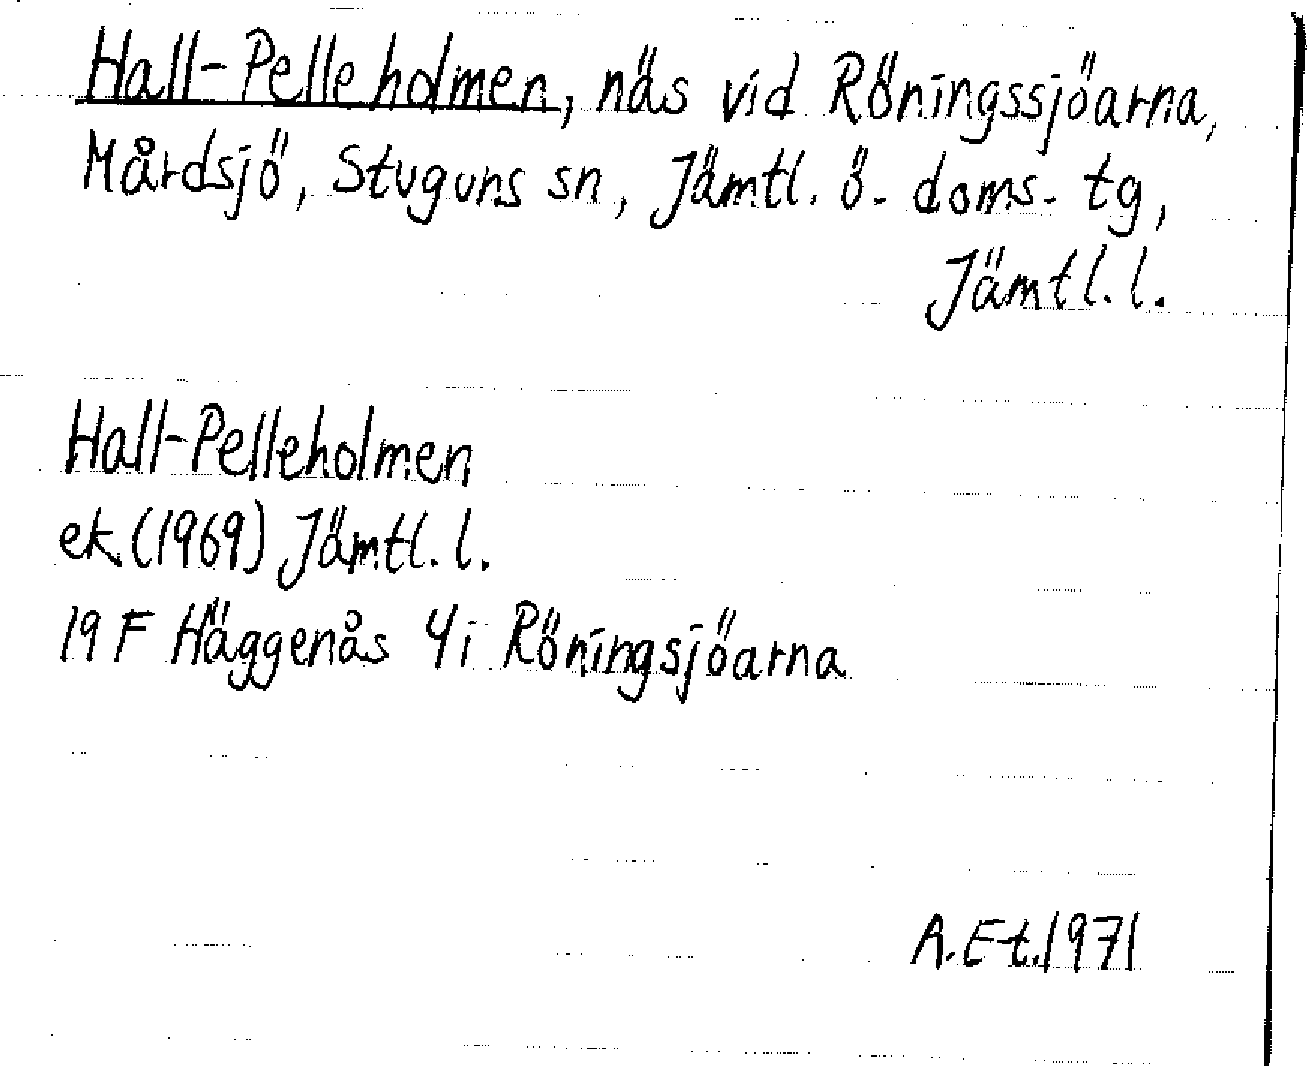 Hall-Pelleholmen, näs vid Röningssjöarna,
Mårdsjö, Stuguns sn, Jämtl. ö. doms. tg,
Jämtl. l.
Hall-Pelleholmen
ek (1969) Jämtl. l.
19 F Häggenås 4i Röningsjöarna
A. E-t. 1971